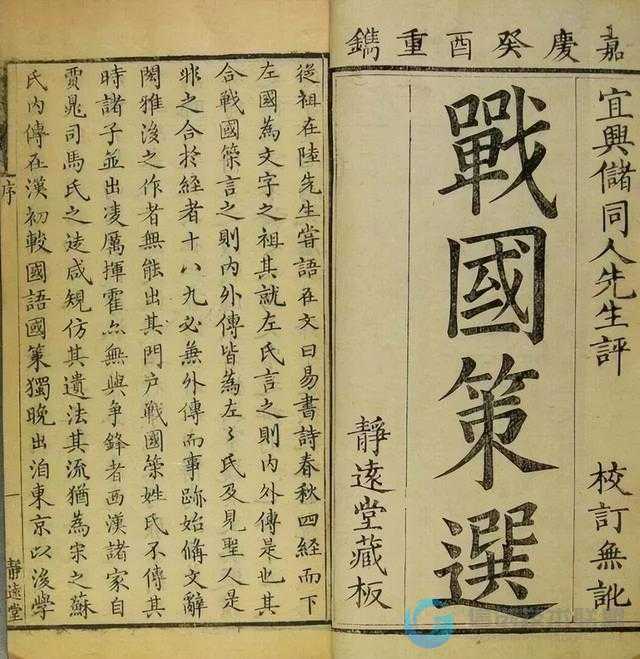 嘉慶癸酉重鐫
宜興儲同人先生評
校訂無訛
戰國策選
靜遠堂藏板
從祖在陸先生嘗語在文曰易書詩春秋四經而下
左國為文字之祖其就左氏言之則內外傳是也其
合戰國策言之則內外傳皆為左々氏及見聖人是
非之合於經者十八九必兼外傳而事跡始備文辭
閎雅浚之作者無能出其門户戰國策姓氏不傳其
時諸子並出凌厲揮霍亦無與争鋒者西漢諸家自
賈晁司馬氏之徒咸規仿其遺法其流猶為宋之蘇
氏內傳在漢初較國語國策獨晚出洎東京以浚學
序
一
靜遠堂